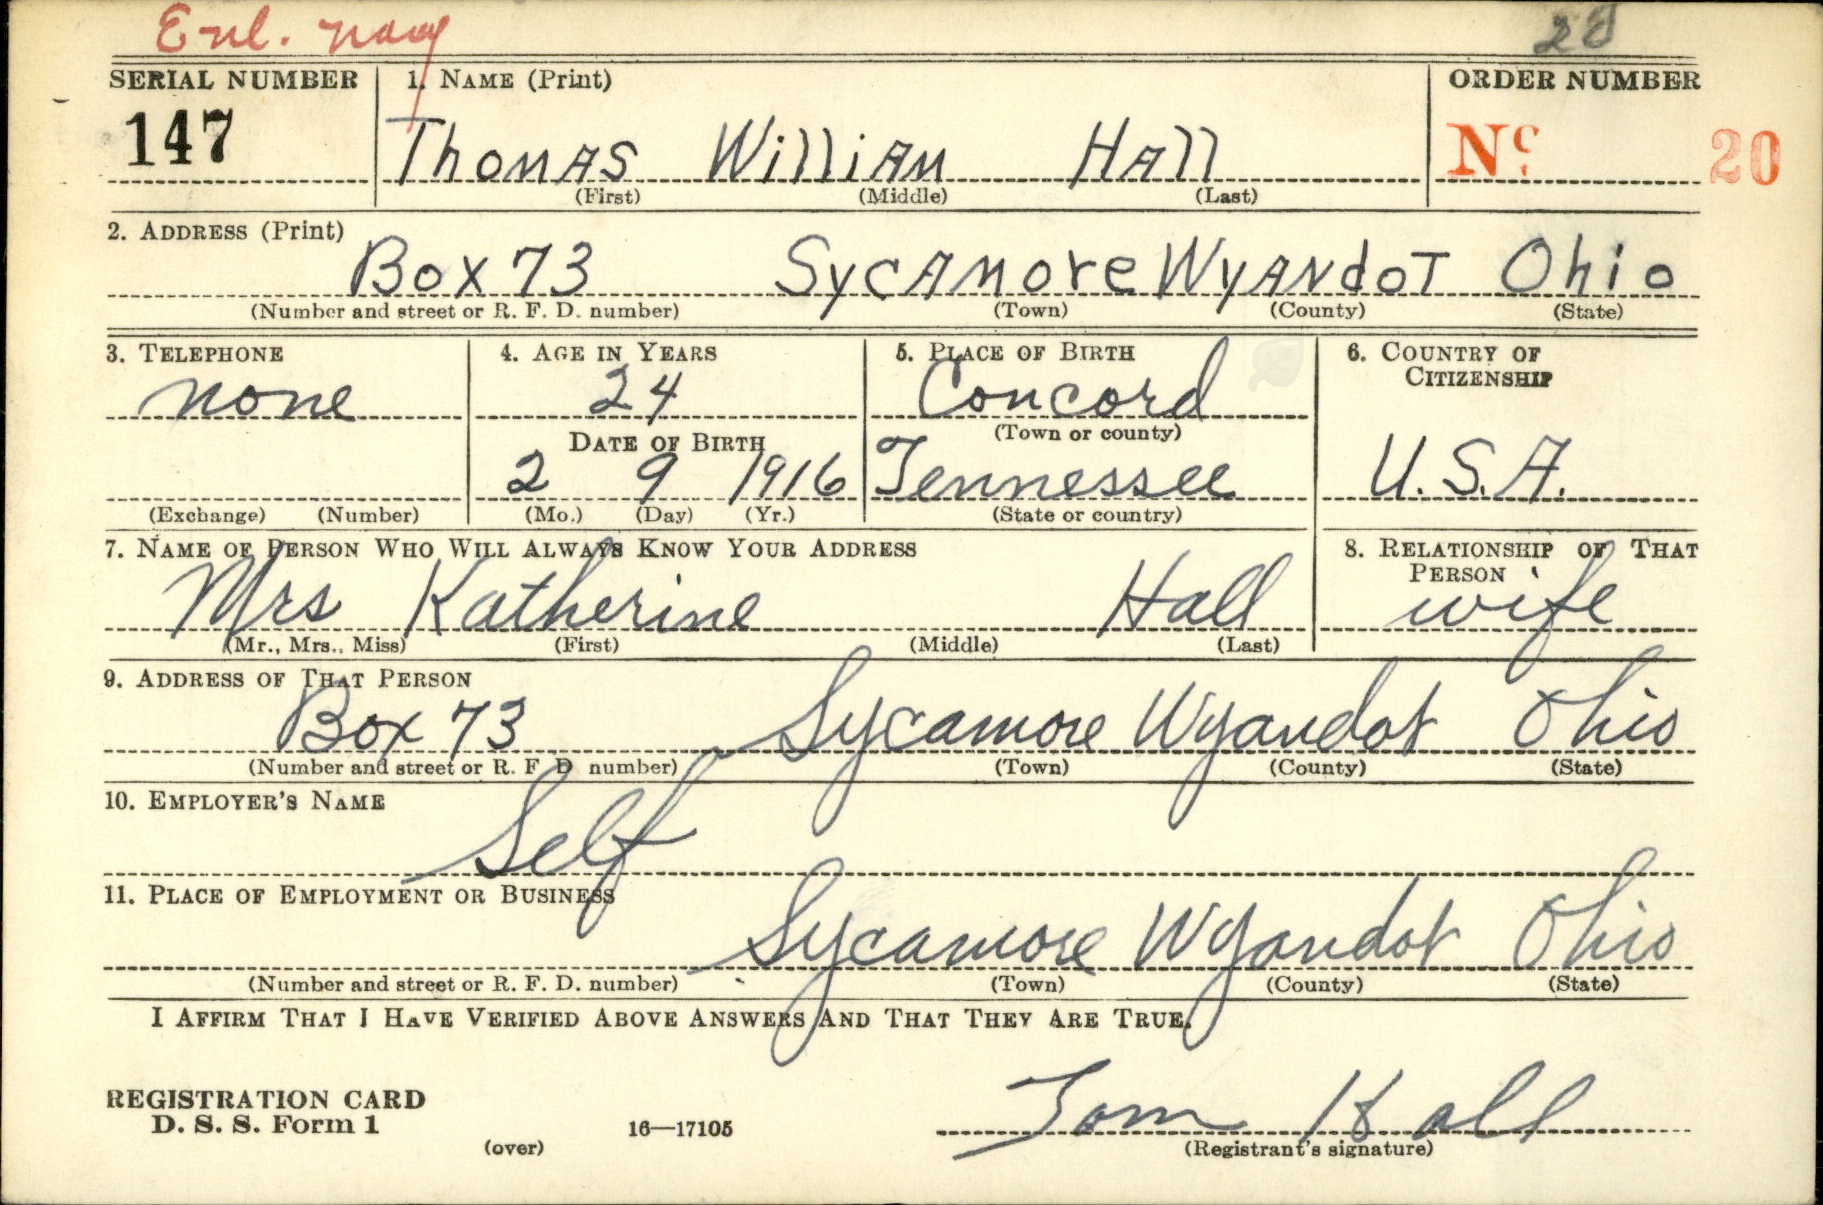 Enl. Navy 20
SERIAL NUMBER 1. NAME (Print) ORDER NUMBER
147 Thomas William Hall No 20
(First) (Middle) (Last)
2. ADDRESS (Print)
Box 73 Sycamore Wyandot Ohio
(Number and street or R. F. D. number) (Town) (County) (State)
3. TELEPHONE 4. AGE IN YEARS 5. PLACE OF BIRTH 6. COUNTRY OF
CITIZENSHIP
none 24 Concord
DATE OF BIRTH (Town or county)
2 9 1916 Tennessee U.S.A.
(Exchange) (Number) (Mo.) (Day) (Yr.) (State or country)
7. NAME OF PERSON WHO WILL ALWAYS KNOW YOUR ADDRESS 8. RELATIONSHIP OF THAT
PERSON
Mrs Katherine Hall wife
(Mr., Mrs., Miss) (First) (Middle) (Last)
9. ADDRESS OF THAT PERSON
Box 73 Sycamore Wyandot Ohio
(Number and street or R. F. D. number) (Town) (County) (State)
10. EMPLOYER'S NAME
Self
11. PLACE OF EMPLOYMENT OR BUSINESS
Sycamore Wyandot Ohio
(Number and street or R. F. D. number) (Town) (County) (State)
I AFFIRM THAT I HAVE VERIFIED ABOVE ANSWERS AND THAT THEY ARE TRUE.
REGISTRATION CARD
D. S. S. Form 1 16—17105 Tom Hall
(over) (Registrant's signature)